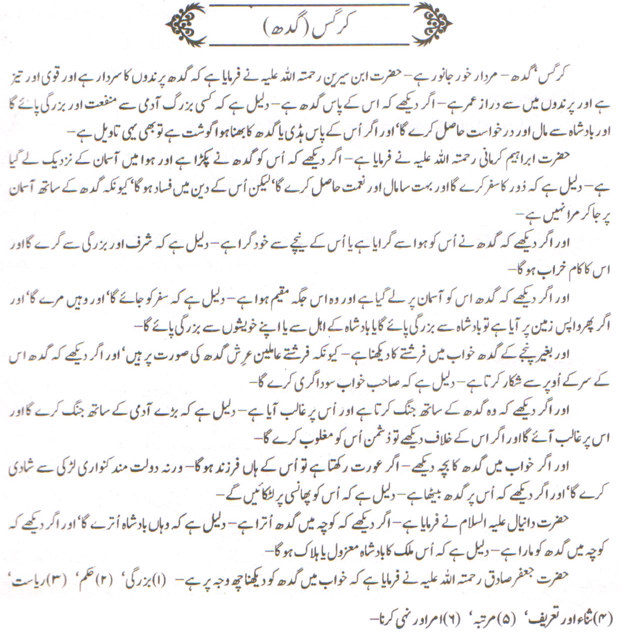 کرگس (گدھ)
کرگس‘ گدھ – مردار خور جانور ہے – حضرت ابن سیرین رحمتہ اللہ علیہ نے فرمایا ہے کہ گدھ پرندوں کا سردار ہے اور قوی اور تیز
ہے اور پرندوں میں سے دراز عمر ہے – اگر دیکھے کہ اس کے پاس گدھ ہے – دلیل ہے کہ کسی بزرگ آدمی سے منفعت اور بزرگی پائے گا
اور بادشاہ سے مال اور درخواست حاصل کرے گا‘ اور اگر اُس کے پاس ہڈی یا گدھ کا بھنا ہوا گوشت ہے تو بھی یہی تاویل ہے –
حضرت ابراہیم کرمانی رحمتہ اللہ علیہ نے فرمایا ہے – اگر دیکھے کہ اُس کو گدھ نے پکڑا ہے اور ہوا میں آسمان کے نزدیک لے گیا
ہے – دلیل ہے کہ دُور کا سفر کرے گا اور بہت سا مال اور نعمت حاصل کرے گا‘ لیکن اُس کے دین میں فساد ہو گا‘ کیونکہ گدھ کے ساتھ آسمان
پر جا کر مرا نہیں ہے –
اور اگر دیکھے کہ گدھ نے اُس کو ہوا سے گرایا ہے یا اُس کے نیچے سے خود گرا ہے – دلیل ہے کہ شرف اور بزرگی سے گرے گا اور
اس کا کام خراب ہو گا –
اور اگر دیکھے کہ گدھ اس کو آسمان پر لے گیا ہے اور وہ اس جگہ مقیم ہوا ہے – دلیل ہے کہ سفر کو جائے گا‘ اور وہیں مرے گا‘ اور
اگر پھر واپس زمین پر آیا ہے تو بادشاہ سے بزرگی پائے گا یا بادشاہ کے اہل سے یا اپنے خویشوں سے بزرگی پائے گا –
اور بغیر پنجے کے گدھ خواب میں فرشتے کا دیکھنا ہے – کیونکہ فرشتے عاملین عرش گدھ کی صورت پر ہیں‘ اور اگر دیکھے کہ گدھ اس
کے سر کے اُوپر سے شکار کرتا ہے – دلیل ہے کہ صاحب خواب سوداگری کرے گا –
اور اگر دیکھے کہ وہ گدھ کے ساتھ جنگ کرتا ہے اور اُس پر غالب آیا ہے – دلیل ہے کہ بڑے آدمی کے ساتھ جنگ کرے گا اور
اس پر غالب آئے گا اور اگر اس کے خلاف دیکھے تو دُشمن اُس کو مغلوب کرے گا –
اور اگر خواب میں گدھ کا بچہ دیکھے – اگر عورت رکھتا ہے تو اُس کے ہاں فرزند ہو گا – ورنہ دولت مند کنواری لڑکی سے شادی
کرے گا‘ اور اگر دیکھے کہ اُس پر گدھ بیٹھا ہے – دلیل ہے کہ اُس کو پھانسی پر لٹکائیں گے –
حضرت دانیال علیہ السلام نے فرمایا ہے – اگر دیکھے کہ کوچہ میں گدھ اُترا ہے – دلیل ہے کہ وہاں بادشاہ اُترے گا‘ اور اگر دیکھے کہ
کوچہ میں گدھ کو مارا ہے – دلیل ہے کہ اُس ملک کا بادشاہ معزول یا ہلاک ہو گا –
حضرت جعفر صادق رحمتہ اللہ علیہ نے فرمایا ہے کہ خواب میں گدھ کو دیکھنا چھ وجہ پر ہے – (۱) بزرگی‘ (۲) حکم‘ (۳) ریاست‘
(۴) ثناء اور تعریف‘ (۵) مرتبہ‘ (۶) امر اور نہی کرنا –